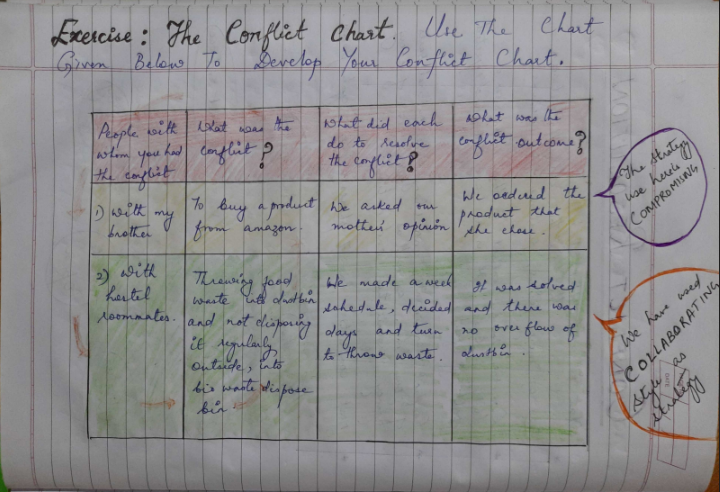 Exercise: The Conflict Chart. Use The Chart
Given Below To Develop Your Conflict Chart.
People with
whom you had
the conflict
What was the
conflict?
What did each
do to resolve
the conflict?
What was the
conflict outcome?
1) with my
brother
To buy a product
from amazon.
We asked our
mothers' opinion
We ordered the
product that
she chose.
2) with
hostel
roommates.
Throwing food
waste into dustbin
and not disposing
it regularly
outside, into
big waste dispose
bin
We made a week
schedule, decided
days and turn
to throw waste.
It was solved
and there was
no overflow of
dustbin.
The strategy
use here is
COMPROMISING
We have used
COLLABORATING
style as
strategy